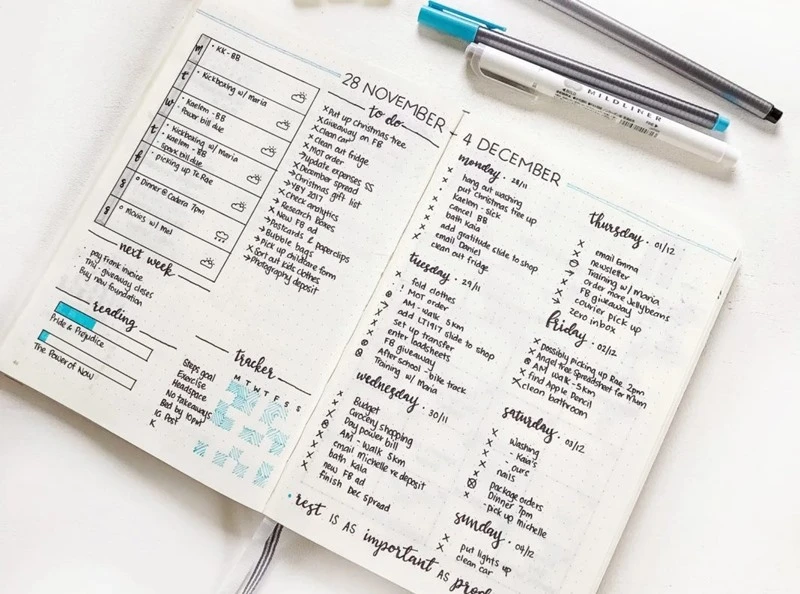 28 NOVEMBER
m
• KK - BB
t
• Kickboxing w/ Maria
w
• Kaelem - BB
• Power bill due
t
• Kickboxing w/ Maria
• Kaelem - BB
• Spark bill due
f
• picking up Te Rae
s
o Dinner @ Cadera 7pm
s
o Movies w/ Mel
to do.
x Put up christmas tree
x Giveaway on FB
x Clean car
x Clean out fridge
x MOT order
→ Update expenses SS
x December spread
→ Christmas gift list
→ YBY 2017
x Check analytics
→ Research Boxes
x New FB ad
→ Postcards & paperclips
→ Bubble bags
→ Pick up childcare form
x Sort out kids clothes
→ Photography deposit
next week
• pay Frank invoice
• TMJ giveaway closes
• Buy new foundation
reading
Pride & Prejudice
The Power of Now
tracker
M T W T F S S
Steps goal
Exercise
Headspace
No takeaways
Bed by 10pm
IG Post
K
4 DECEMBER
monday. 28/11
x hang out washing
x put Christmas tree up
x Kaelem - sick
x cancel BB
x bath kaia
x add gratitude slide to shop
x email Daniel
x clean out fridge
tuesday. 29/11
x fold clothes
x ! MOT order
AM - walk 5km
x add LT1917 slide to shop
x set up transfer
x enter loadsheets
x FB giveaway
After school - bike track
Training w/ Maria
wednesday. 30/11
x Budget
x Grocery shopping
x Day power bill
AM - Walk 5km
x email michelle re deposit
x bath kaia
x new FB ad
x finish Dec spread
thursday. 01/12
x email Emma
x newsletter
Training w/ Maria
→ order more Jellybeans
x FB giveaway
x courier pick up
→ zero inbox
friday. 02/12
x possibly picking up Rae 2pm
x Angel tree Spreadsheet for Mum
AM walk - 5km
x find Apple Pencil
x clean bathroom
saturday. 03/12
x washing
x - Kaia's
x - ours
x nails
x package orders
Dinner 7pm
x - pick up michelle
sunday. 04/12
x put lights up
x clean car
rest IS AS important AS
MILDLINER